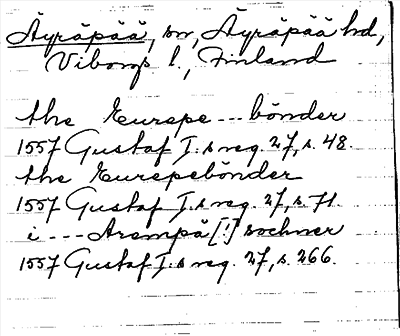 Äyräpää, sn, Äyräpää hd,
Viborgs l., Finland
the Eurepe---bönder
1557 Gustaf I:s reg. 27, s. 48.
the Eurepebönder
1557 Gustaf I:s reg. 27, s. 71.
i --- Arempä [!] sochner
1557 Gustaf I:s reg. 27, s. 266.